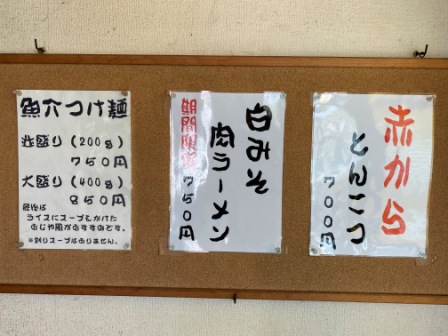 魚介つけ麺
並盛り(200g)
750円
大盛り(400g)
850円
最後は
ライスにスープをかけた
おじや風がおすすめです。
※割りスープはありません。
期間限定
750円
白みそ
肉ラーメン
赤から
とんこつ
700円